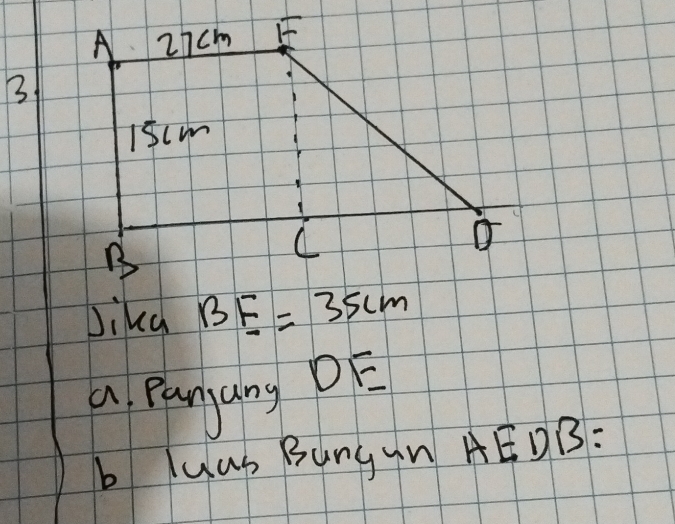 A 27cm E
3.
15cm
B C D
Jika BE = 35cm
a. Panjang DE
b luas Bangun AEDB: